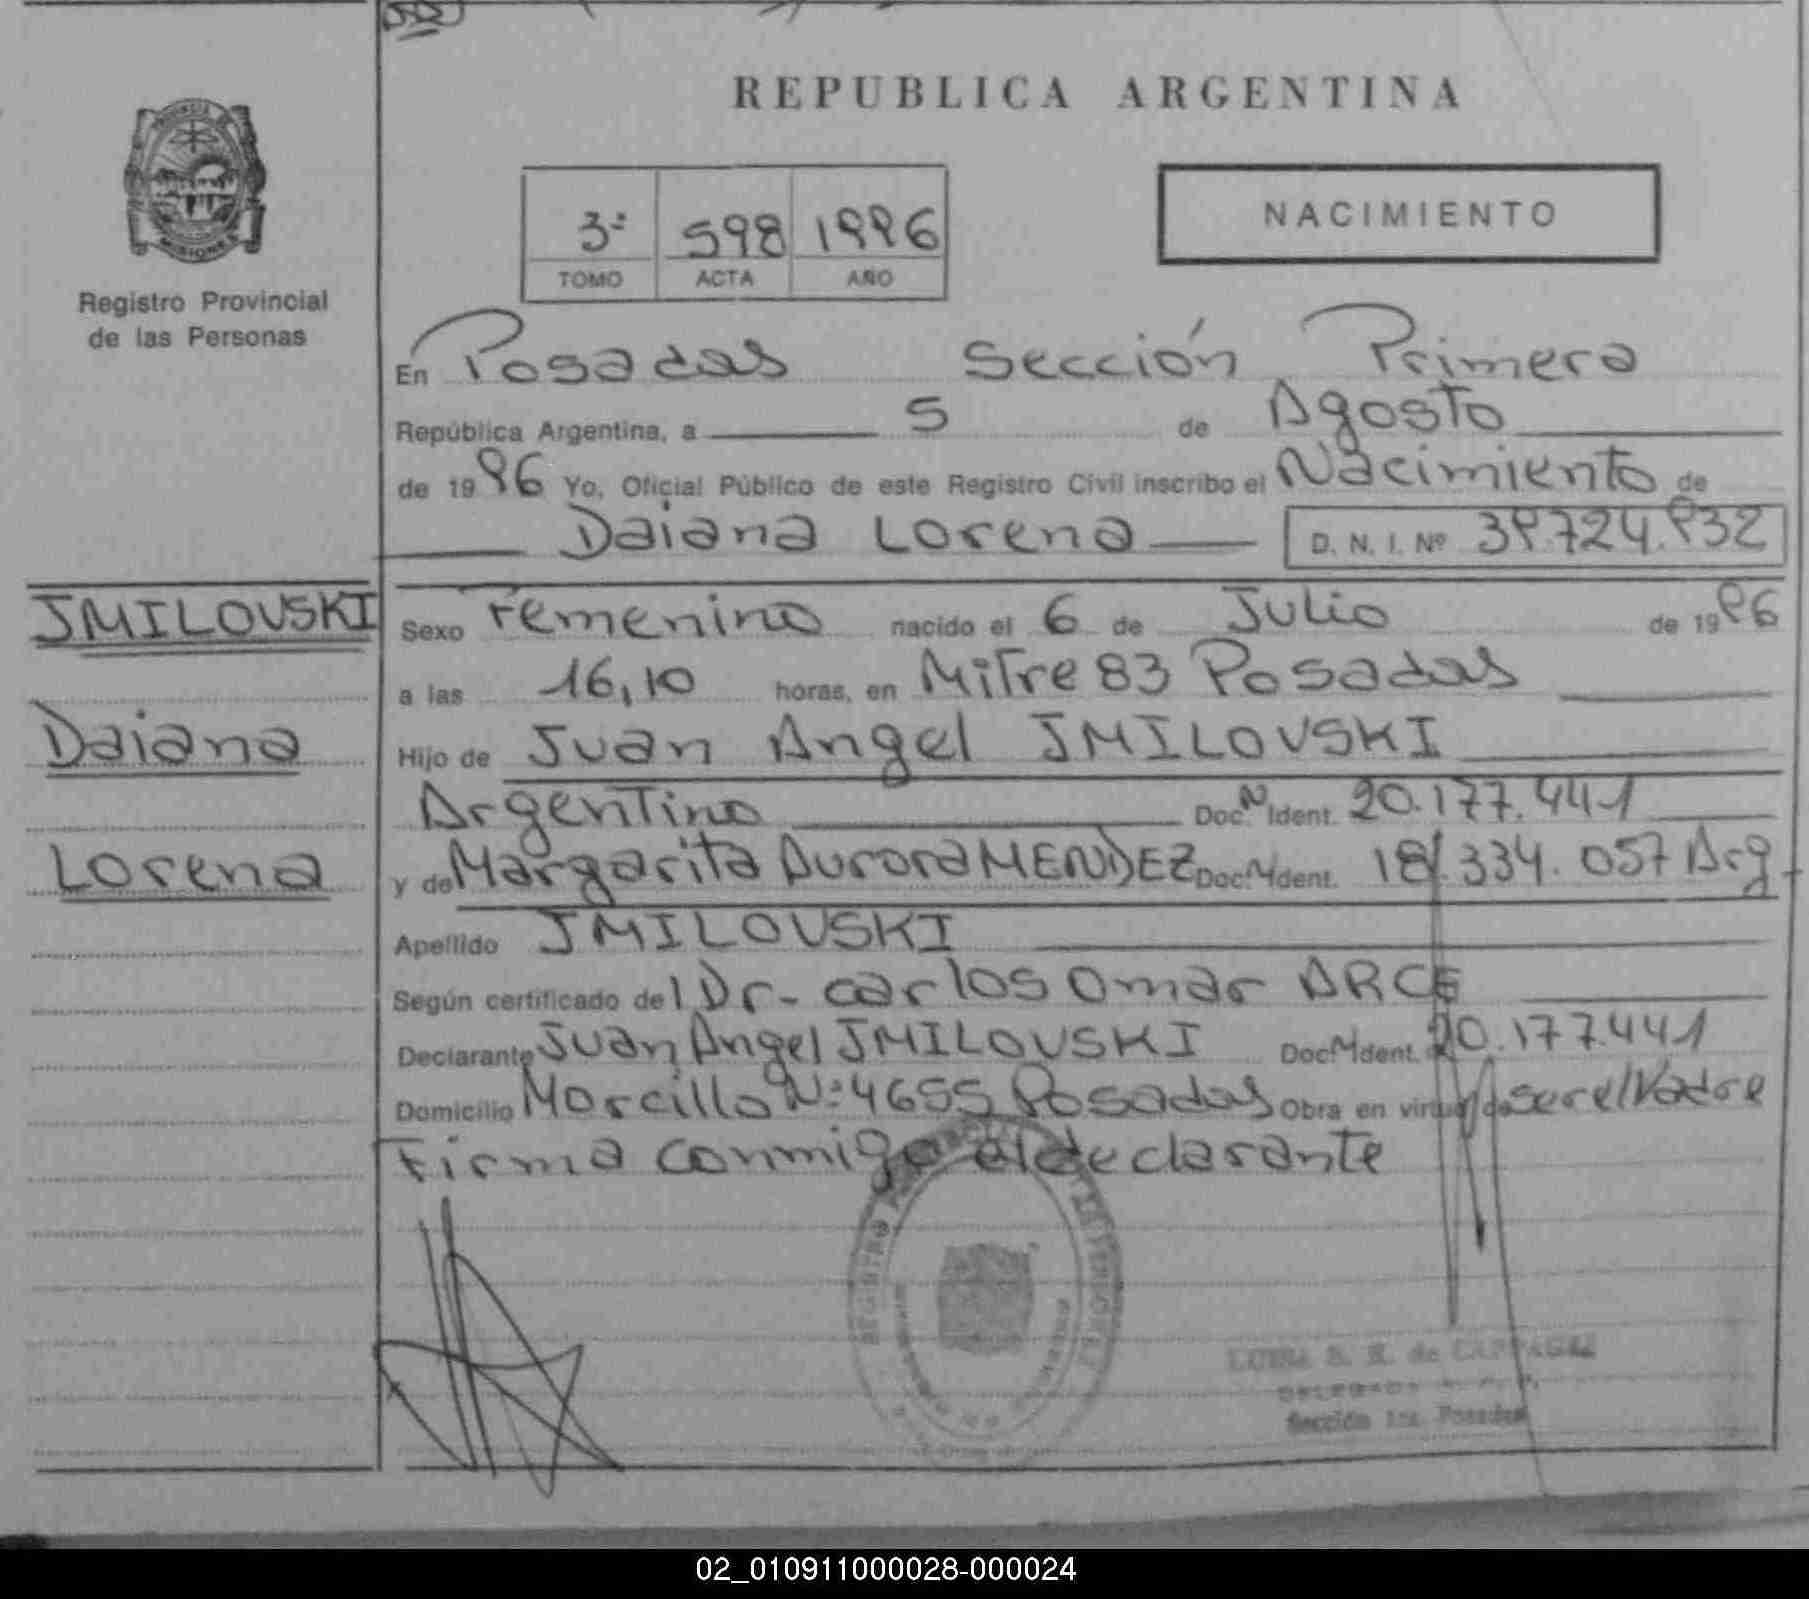 REPUBLICA ARGENTINA
PROVINCIA DE
MISIONES
Registro Provincial
de las Personas
3º 598 1996
TOMO ACTA AÑO
NACIMIENTO
En Posadas Sección Primera
República Argentina, a 5 de Agosto
de 1996 Yo, Oficial Público de este Registro Civil inscribo el Nacimiento de
Daiana Lorena D. N. I. Nº 39.724.932
JMILOVSKI
Daiana
Lorena
Sexo Femenino nacido el 6 de Julio de 1996
a las 16,10 horas, en Mitre 83 Posadas
Hijo de Juan Angel JMILOVSKI
Argentino Doc. N Ident. 20.177.441
y de Margarita Aurora MENDEZ Doc. N Ident. 18.334.057 Arg.
Apellido JMILOVSKI
Según certificado del Dr. Carlos Omar ARCE
Declarante Juan Angel JMILOVSKI Doc. N Ident. 20.177.441
Domicilio Morcillo Nº 4655 Posadas Obra en virtud de ser el Padre
Firma conmigo el declarante
REGISTRO
LUISA de
DELEGADA
Sección 1ra. Posadas
02_010911000028-000024